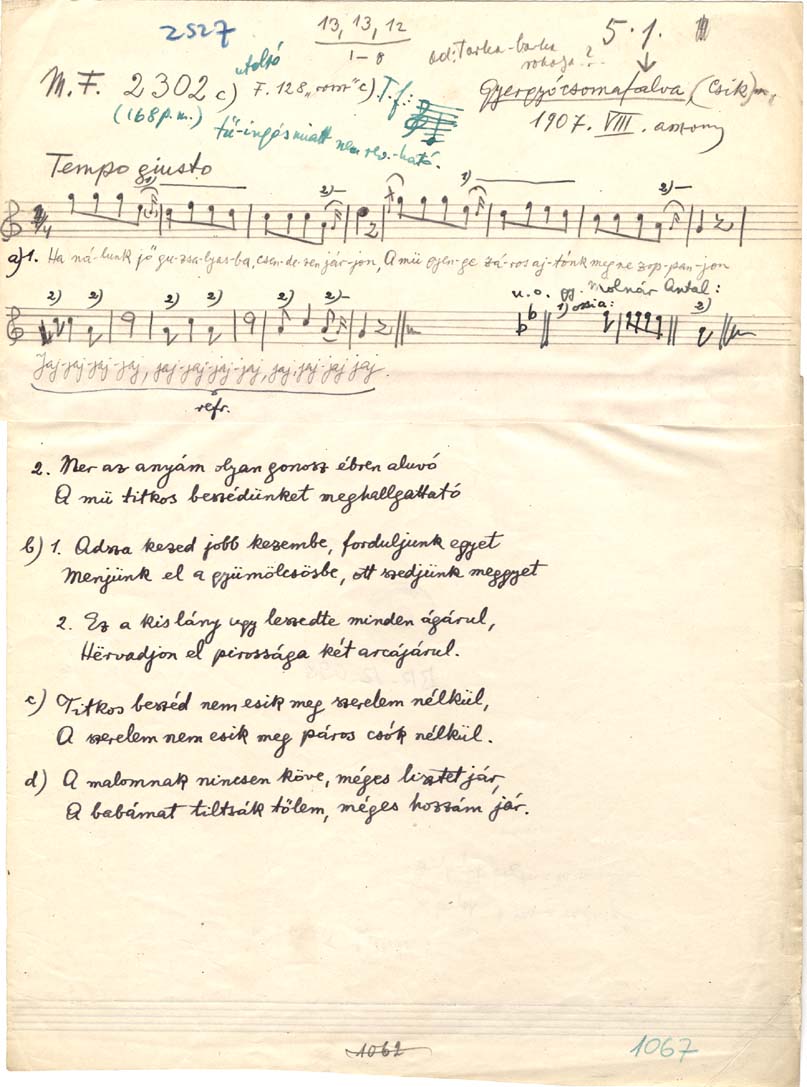 2527
13, 13, 12
1–8
5·1.
ad: Tarka-barka
M.F. 2302 c) utolsó F. 128 "rom" c) T.f.:
Gyergyócsomafalva, (Csík)m.
(168 p.m.)
tű-ingás miatt nem rev.-ható.
1907. VIII. asszony
Tempo giusto
1) 2)– 1) 2)–
a) 1. Ha ná-lunk jő gu-zsa-lyas-ba, csen-de-sen jár-jon, A mü gyen-ge zá-ros aj-tónk meg ne rop-pan-jon
u.o. gy. Molnár Antal:
2) 2) 2) 2) 2)– 1) ossia: 2)
Jaj-jaj-jaj-jaj, jaj-jaj-jaj-jaj, jaj, jaj-jaj jaj.
refr.
2. Mer az anyám olyan gonosz ébren aluvó
A mü titkos beszédünket meghallgattató
b) 1. Adsza kezed jobb kezembe, forduljunk egyet
Menjünk el a gyümölcsösbe, ott szedjünk meggyet
2. Ez a kis lány ugy leszedte minden ágárul,
Hërvadjon el pirossága két arcájárul.
c) Titkos beszéd nem esik meg szerelem nélkül,
A szerelem nem esik meg páros csók nélkül.
d) A malomnak nincsen köve, méges lisztet jár,
A babámat tiltsák tőlem, méges hozzám jár.
1062
1067